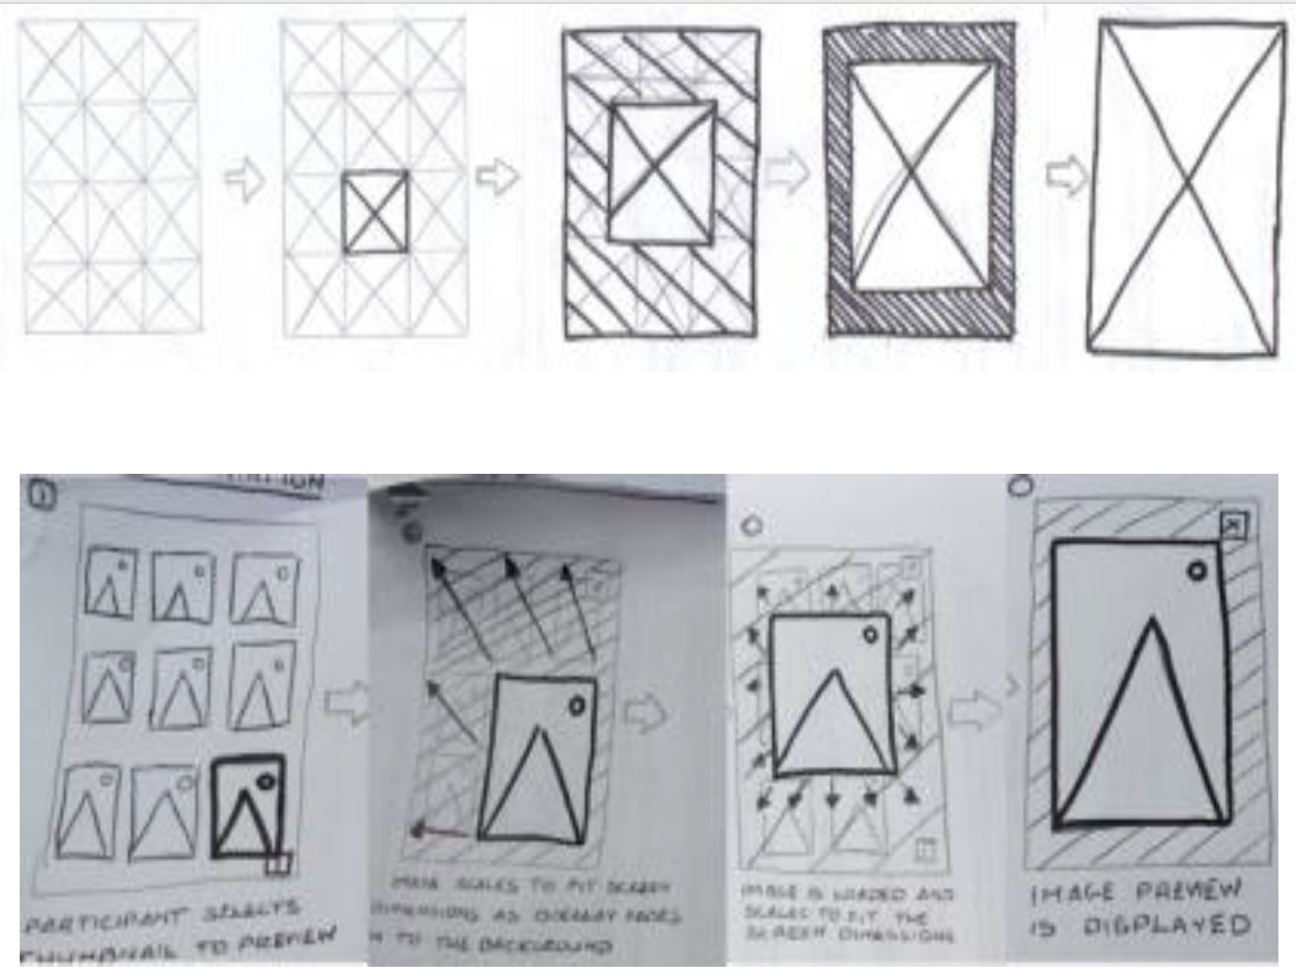 1
PARTICIPANT SELECTS
THUMBNAIL TO PREVIEW
SCALES TO FIT SCREEN
DIMENSIONS AS OVERLAY FADES
TO THE BACKGROUND
IMAGE IS LOADED AND
SCALES TO FIT THE
SCREEN DIMENSIONS
X
IMAGE PREVIEW
IS DISPLAYED